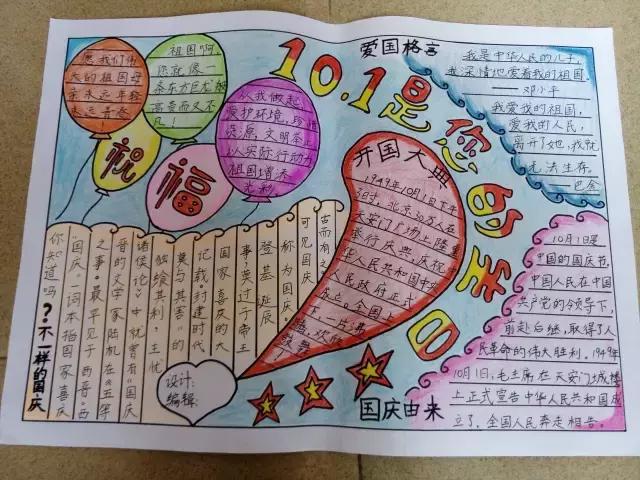 愿我们伟
大的祖国母
亲永远年轻
永远青春
！
祖国啊，
您就像一
条东方巨龙般
高贵而又不
凡！
从我做起，
爱护环境，珍惜
资源，文明奉上
以实际行动为
祖国增添
光彩。
祝
福
10.1是您的生日
爱国格言
我是中华人民的儿子，
我深情地爱着我的祖国。
——邓小平
我爱我的祖国，
爱我的人民，
离开了她，我就
无法生存。
——巴金
开国大典
1949年10月1日下午
3时，北京30万人在
天安门广场上隆重
举行庆典，庆祝中
华人民共和国中央
人民政府正式
成立，全国上
下一片沸
腾，欢欣
鼓舞！
10月1日是
中国的国庆节，
中国人民在中国
共产党的领导下，
前赴后继，取得了人
民革命的伟大胜利。1949年
10月1日，毛主席在天安门城楼
上正式宣告中华人民共和国成
立了，全国人民奔走相告。
国庆由来
设计：
编辑：
你知道吗？不一样的国庆
“国庆”一词本指国家喜庆
之事，最早见于西晋。西
晋的文学家陆机在《五等
诸侯论》中就曾有“国庆
独飨其利，主忧
莫与其害”的
记载，封建时代
国家喜庆的大
事，莫过于帝王
登基诞辰，
称为国庆。
可见国庆
古而有之。